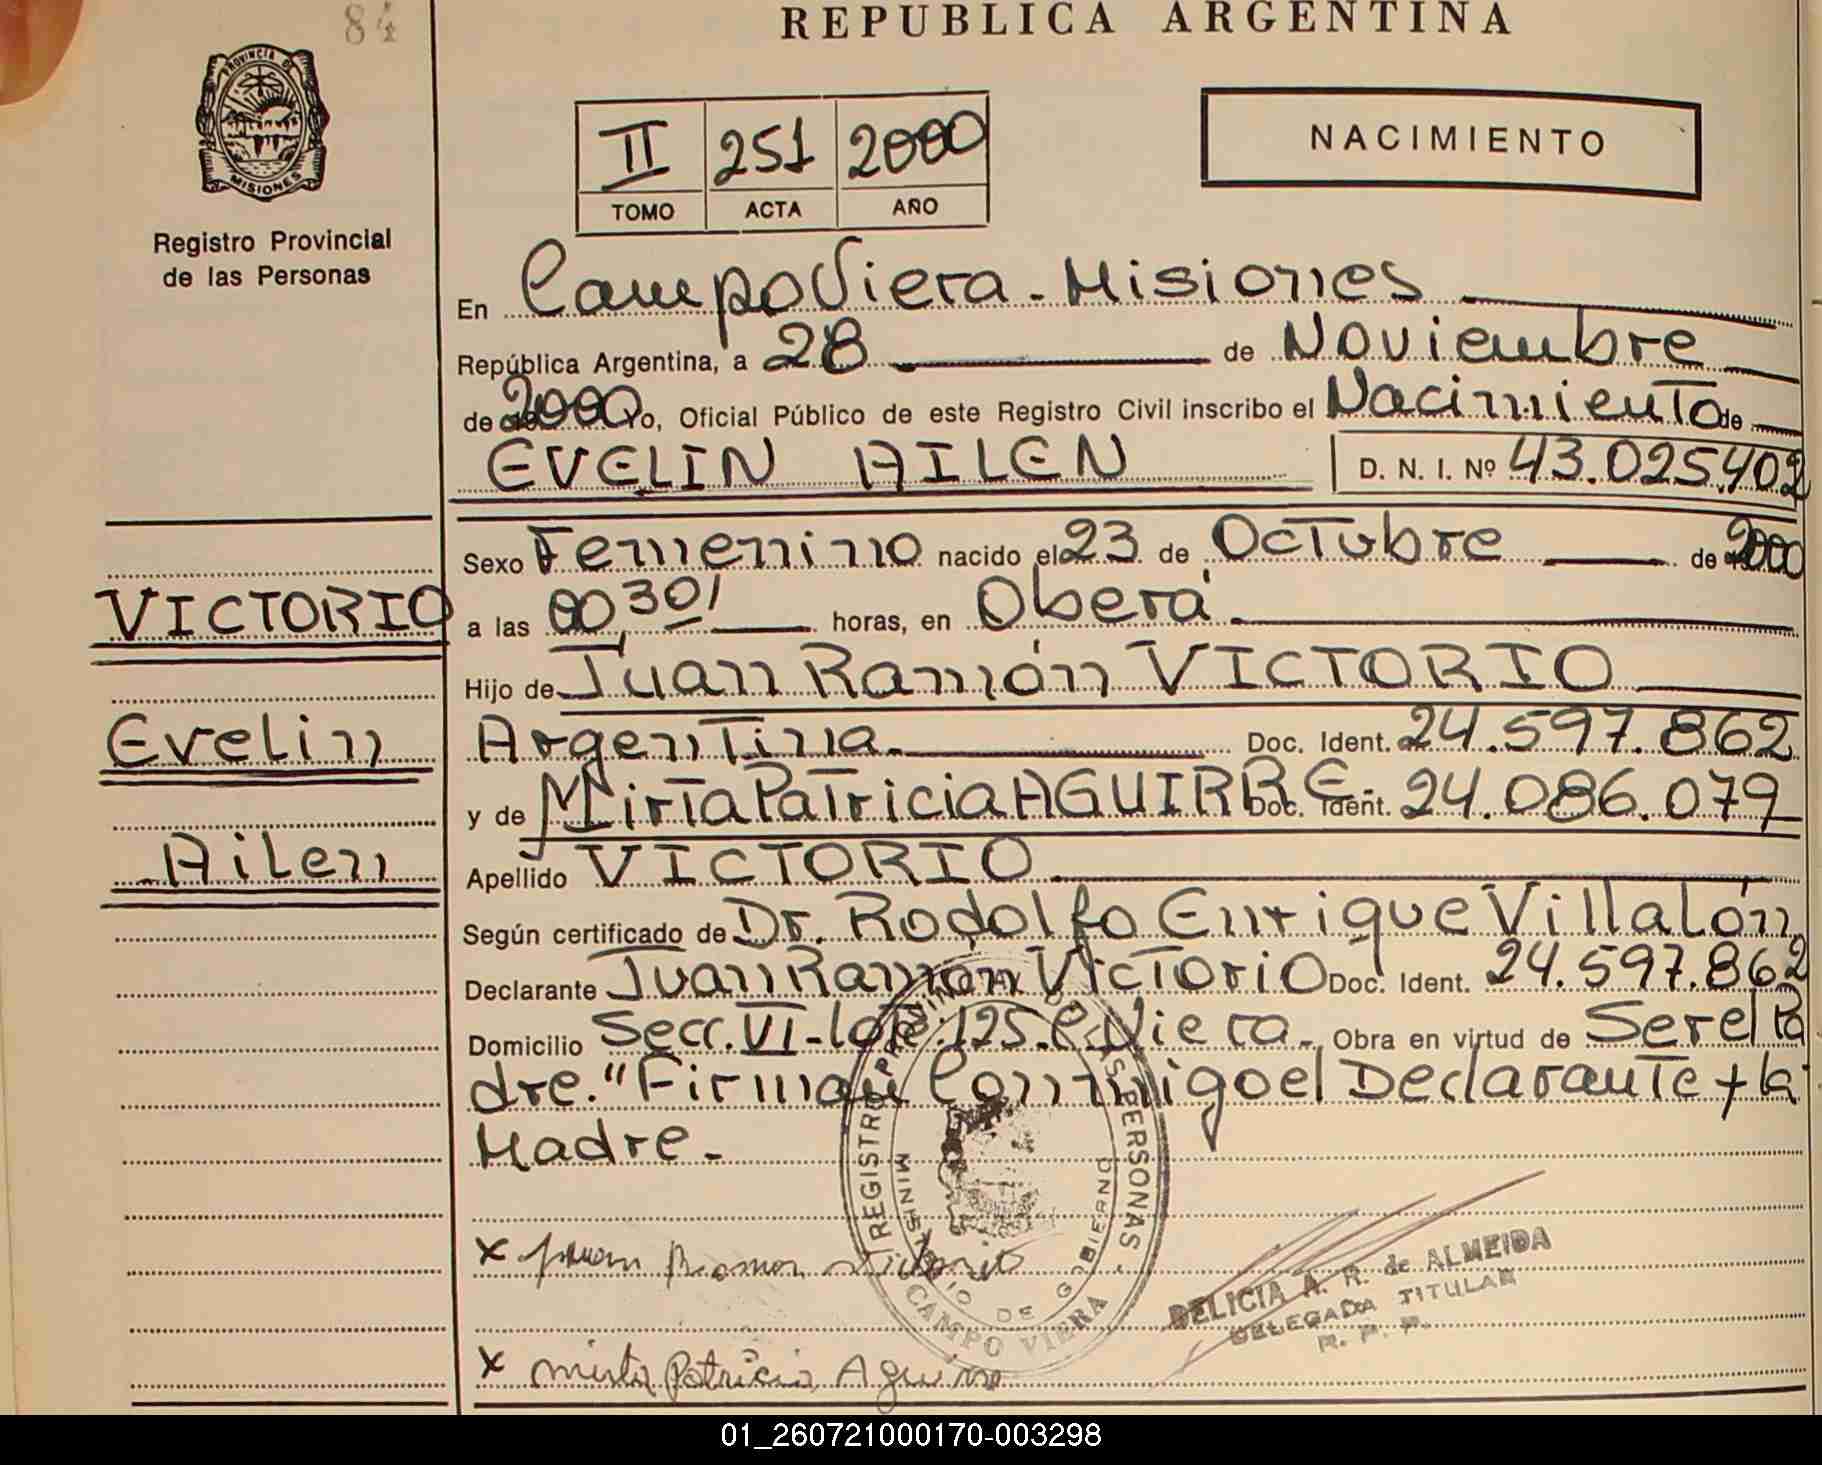 84
REPUBLICA ARGENTINA
PROVINCIA DE
MISIONES
Registro Provincial
de las Personas
II 251 2000
TOMO ACTA AÑO
NACIMIENTO
En Campo Viera - Misiones
República Argentina, a 28 de Noviembre
de 2000 Yo, Oficial Público de este Registro Civil inscribo el Nacimiento de
EVELIN AILEN D. N. I. Nº 43.025.402
Sexo Femenino nacido el 23 de Octubre de 2000
VICTORIO
a las 00,30' horas, en Oberá
Hijo de Juan Ramón VICTORIO
Evelin
Argentina. Doc. Ident. 24.597.862
y de Mirta Patricia AGUIRRE. Doc. Ident. 24.086.079
Ailen
Apellido VICTORIO
Según certificado de Dr. Rodolfo Enrique Villalón
Declarante Juan Ramón Victorio Doc. Ident. 24.597.862
Domicilio Secc. VI - lote 125 - C. Viera - Obra en virtud de Ser el Pa
dre. "Firman Conmigo el Declarante y la
Madre -
REGISTRO PROVINCIAL DE LAS PERSONAS
MINISTERIO DE GOBIERNO
CAMPO VIERA
x Juan Ramon Victorio
DELICIA A. R. de ALMEIDA
DELEGADA TITULAR
R. P. P.
x Mirta Patricia Aguirre
01_260721000170-003298